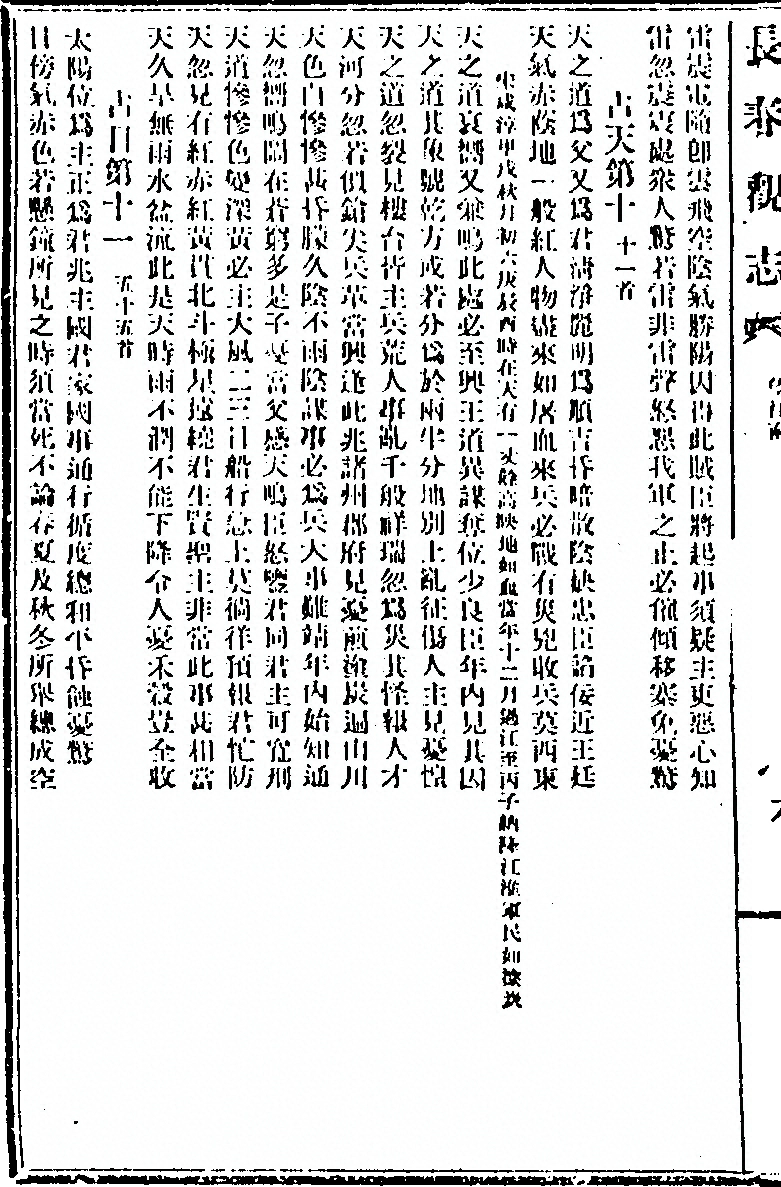 長春觀志
雷震電隨卽雲飛空陰氣勝陽因得此賊臣將起事須疑主吏惡心知
雷忽震震處衆人驚若雷非雷聲怒惡我軍之正必催傾移寨免憂驚
占天第十 十一首
天之道爲父又爲君淸淨從明爲順吉昏暗散陰缺忠臣諂佞近王廷
天氣赤蔭地一般紅人物盡來如屠血來兵必戰有災兇收兵莫西東
宋咸淳甲戌秋月初六庚辰酉時在天有一火餘高映地如血當年十二月過江至丙子納降江淮軍民如燎炭
天之道哀嚮又兼鳴此處必至興王道異謀奪位少良臣年內見其因
天之道其象號乾方或若分爲於兩半分地別上亂征傷人主見憂惶
天之道忽裂見樓台皆主兵荒人事亂千般祥瑞忽爲災其怪報人才
天河分忽若似鎗尖兵革當興逢此兆諸州郡府見憂煎塗炭過山川
天色白慘慘甚昏朦久陰不雨陰謀事必爲兵大事難靖年內始知通
天忽嚮鳴聞在蒼窮多是子憂當父惑天鳴臣怒鑒君同君主可寬刑
天道慘慘色變深黃必主大風二三日船行急上莫徜徉預報君忙防
天忽見有紅赤紅黃貫北斗極星遶繞君生賢聖主非當此事甚相當
天久旱無雨水盆流此是天時雨不潤不能下降令人憂禾穀豈全收
占日第十一 五十五首
太陽位爲主正爲君兆主國君家國事通行循度總和平昏蝕憂驚
日傍氣赤色若懸鏡所見之時須當死不論春夏及秋冬所舉總成空